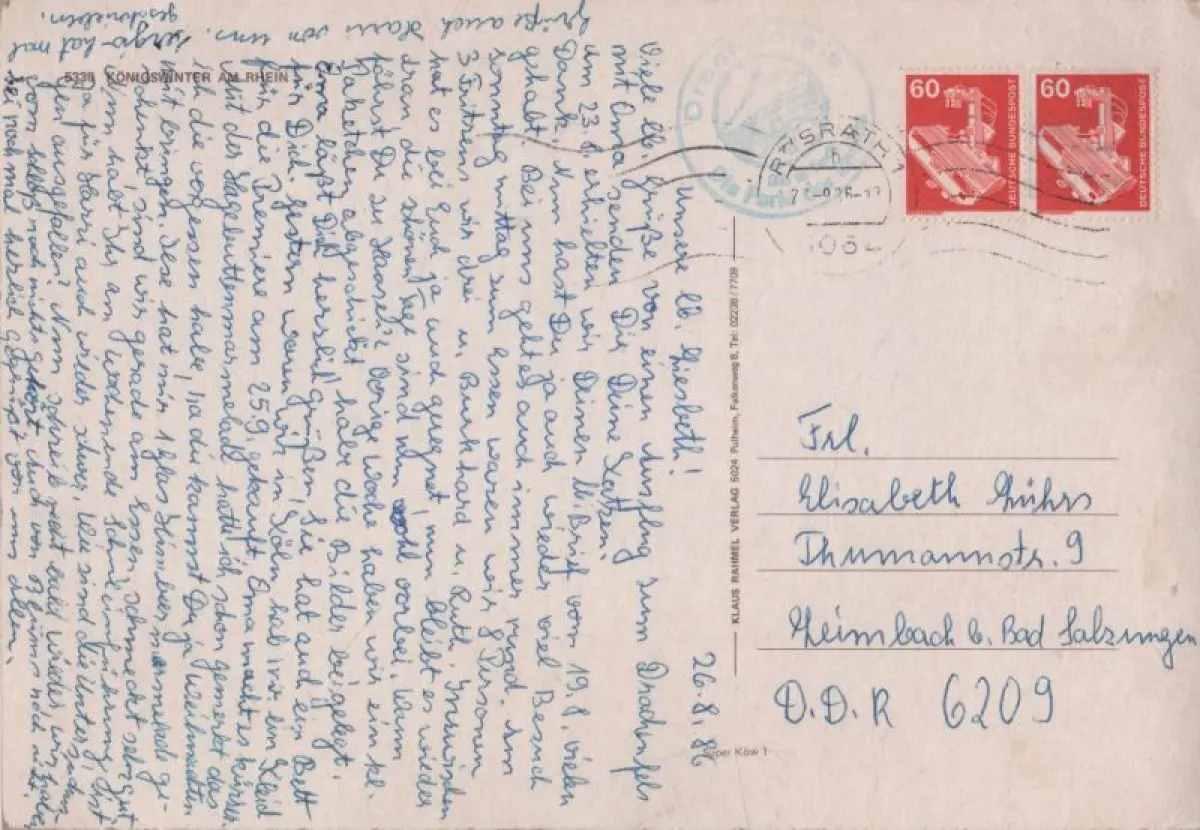 5330 KÖNIGSWINTER AM RHEIN
26.8.86
Unsere lb. Liesbeth!
Viele lb. Grüße von einem Ausflug zum Drachenfels
mit Oma senden Dir Deine Latzen.
Am 23.8. erhielten wir Deinen lb. Brief vom 19.8., vielen
Dank. Nun hast Du ja auch wieder viel Besuch
gehabt. Bei uns geht es auch immer rund. Am
Sonntag mittag zum Essen waren wir 8 Personen
3 Fritzen, wir drei u. Burkhard u. Ruth. Inzwischen
hat es bei Euch ja auch geregnet, nun bleibt es wieder
dran, die schönen Tage sind nun wohl vorbei. Wann
fährst Du zu Hansel? Vorige Woche haben wir ein kl.
Paketchen abgeschickt, habe die Bilder beigelegt.
Oma läßt Dich herzlich grüßen, sie hat auch ein Bett
für Dich. Gestern waren wir in Köln, hab mir ein Kleid
für die Premiere am 25.9. gekauft. Oma macht es kürzer.
Mit der Hagebuttenmarmelade hatte ich schon gemerkt, das
ich die vergessen habe, na die kannst Du ja Weihnachten
mit bringen. Ilse hat mir 1 Glas Himbeermarmelade ge-
schenkt, sind wir gerade am Essen, schmeckt sehr gut
Nun habt Ihr am Wochenende Schuleinführung, ist
ja für Harri auch wieder schwer, wie sind die Untersuchun-
gen ausgefallen? Nun schreib recht bald wieder, wir haben
vom noch nichts gehört auch von Blumes noch nicht.
Sei noch mal herzlich gegrüßt von uns allen.
hat mal
geschrieben.
Grüße auch Harri von uns.
KLAUS RAHMEL VERLAG 5024 Pulheim, Falkenweg 8, Tel: 02238/7709
Super Köw 1
RÖSRATH 1
h
506
60
DEUTSCHE BUNDESPOST
60
DEUTSCHE BUNDESPOST
Frl.
Elisabeth Lührs
Thumannstr. 9
Leimbach b. Bad Salzungen
D.D.R 6209